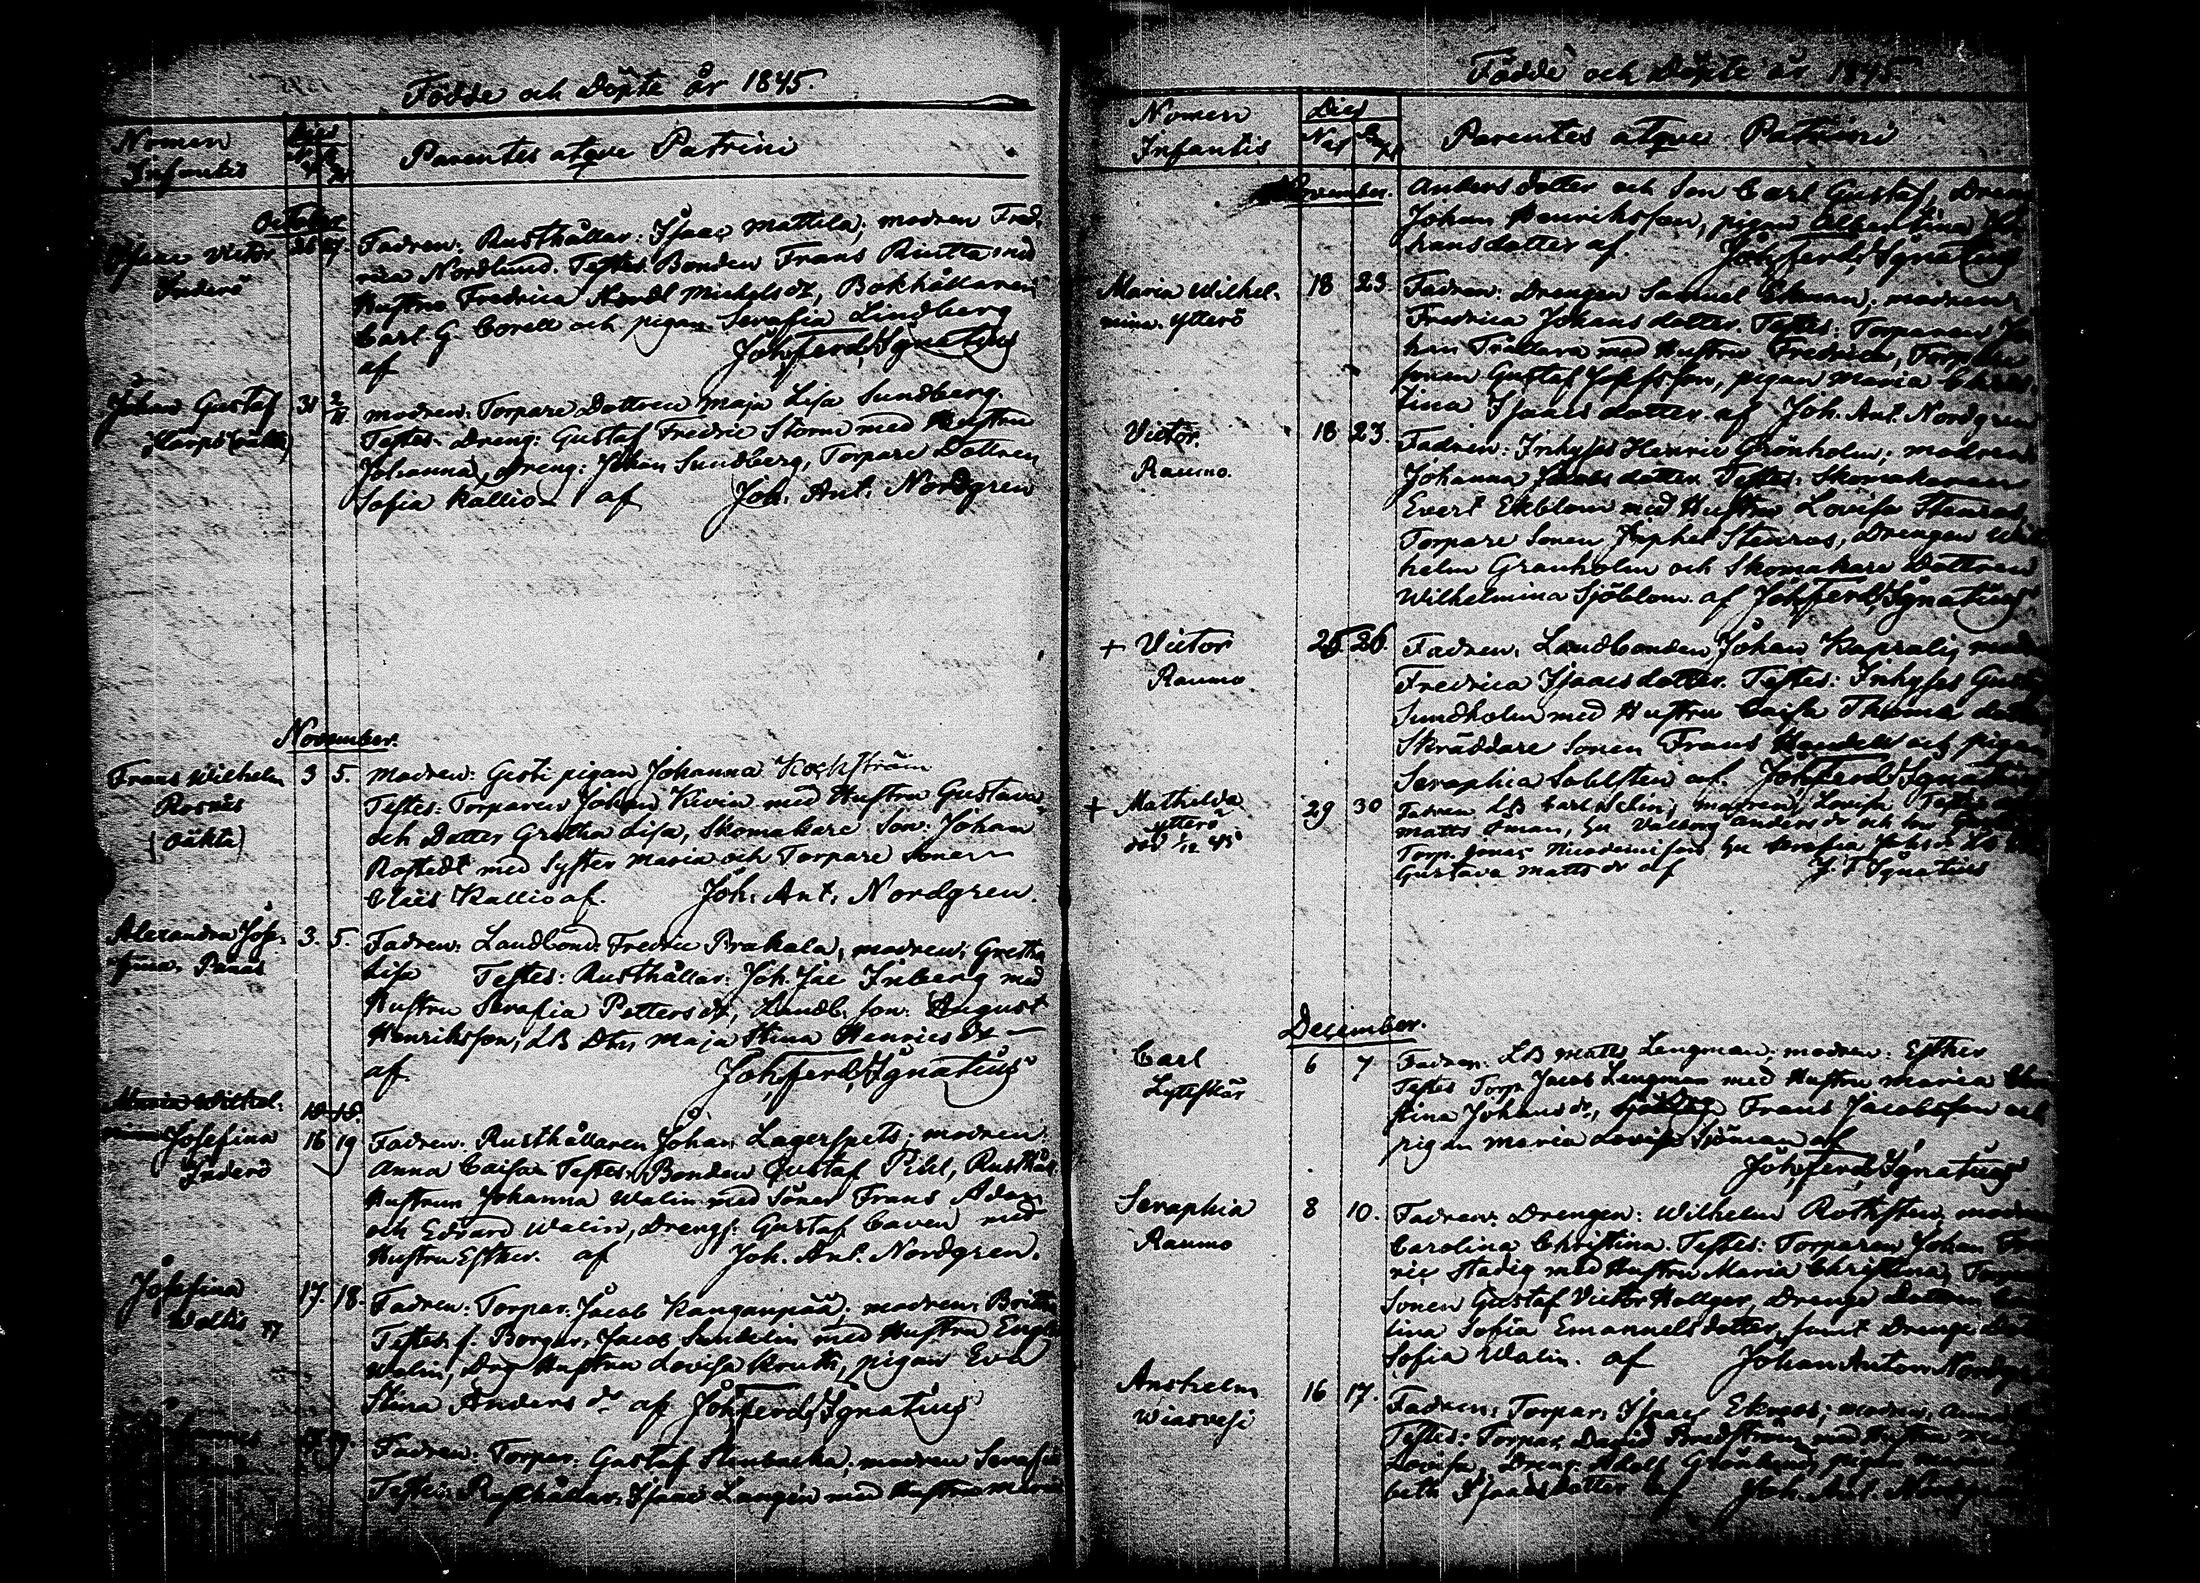 Födde och Döpte år 1845.
Nomen Infantis
Dies
Parentes atque Patrini
October.
Victor 26 27. Fadren: Rusthållar: Isaac Mattila; modren Fred-
Inderö rica Nordlund. Testes: Bonden Frans Riutta med
Hustru Fredrica Michelsdr, Bokhållaren
Carl. G. Corell och pigan Serafia Lindberg
af Joh. Ferd. Ignatius
Johan Gustaf 31 2/11 modren: Torpare Dottren Maja Lisa Sundberg.
(oäkta) Testes. Dreng: Gustaf Fredric Storm med Hustru
Johanna, dreng: Johan Sundberg, Torpare Dottren
Sofia Kallio af Joh. Ant. Nordgren
November.
Frans Wilhelm 3 5. modren: Gesti pigan Johanna Kockström
Rosnäs Testes: Torparen Johan Kivin med Hustru Gustava
(oäkta) och Dotter Gretha Lisa, Skomakare Son: Johan
Rostedt med Syster Maria och Torpare Sonen
Kallio af. Joh. Ant. Nordgren.
Alexandra Jose- 3. 5. Fadren: Landbond: Fredric Prakala; modren: Gretha
fina. Pånäs Lisa Testes: Rusthållar: Joh. Jac Inberg med
Hustru Serafia Pettersdr, Landb. son: August
Henriksson, LB Dtr, Maja Stina Henricsdr
af Joh. Ferd. Ignatius
Maria Wilhel-
mina Josefina 16 19 Fadren: Rusthållaren Johan Lagerspets; modren:
Inderö Anna Caisa Testes: Bonden Gustaf Pihl, Rusthål.
Hustrun Johanna Walin med Söner Frans Adam
och Edvard Walin, Drengs: Gustaf Caven med
Hustru Esther. af Joh. Ant. Nordgren.
Josefina 17. 18. Fadren: Torpar: Jacob Kanganpää; modren: Britta
Testes f. Borgar: Jacob Sundelin med Hustru
Walin, Drg Hustru Lovisa Kruth, pigan Eva
Stina Anders dr af Joh. Ferd. Ignatius
Fadren: Torpar: Gustaf Stenbacka; modren Serafia
Testes: Rusthållar: Isaac Langin med Hustru Maria
Födde och Döpte år 1845.
Nomen Infantis
Dies
Parentes atque Patrini
November. Anders dotter och Son Carl Gustaf, Dreng
Johan Henriksson, pigan Albertina Jo-
hansdotter af. Joh. Ferd. Ignatius
Maria Wilhel- 18 23. Fadren: Drengen Samuel Ekman; modren:
mina. Ytterö Fredrica Johans dotter. Testes: Torparen Jo-
han Trädlara med Hustru Fredrica, Torpare
sonen Gustaf Josefsson, pigan Maria Chris-
tina Isaacs dotter af Joh. Ant. Nordgren
Victor. 18 23. Fadren: Inhyses Henric Grönholm; modren:
Raumo. Johanna Jacobs dotter. Testes: Skomakaren
Evert Ekblom med Hustru Lovisa Stenros
Torpare Sonen Japhet Stenros, Drengen Wil-
helm Granholm och Skomakare Dottren
Wilhelmina Sjöblom. af Joh. Ferd. Ignatius
+ Victor 25. 26. Fadren: Landbonden Johan Kaprali;
Raumo Fredrica Isaacs dotter. Testes: Inhyses Gustaf
Sundholm med Hustru Caisa Thomas
Skräddare Sonen Frans och pigan
Seraphia Sahlsten af. Joh. Ferd. Ignatius
+ Mathilda 29 30 Fadren LB Carl Selin; modren; Lovisa Testes
Ytterö Matts Öman, Hu Valborg Anders dr och son
död 1/12 45 Torp. Jonas Nicodemisson Hu Serafia Johs dr
Gustava Matts dr af J. F. Ignatius
December.
Carl 6 7 Fadren: LB Matts Lengman; modren: Esther
Lyttskär Testes Torp. Jacob Lengman med Hustru Maria
stina Johans dr, Frans Jacobsson och
pigan Maria Lovisa Sjöman af
Joh. Ferd. Ignatius
Seraphia 8 10. Fadren: Drengen: Wilhelm Rothsten, modren
Raumo Carolina Christina. Testes: Torparen Johan
ric Stadig med Hustru Maria Christina, Torpare
Sonen Gustaf Victor Hallger, Drenge Dottren
tina Sofia Emanuelsdotter, samt Drenge
Sofia Walin. af Johan Anton Nordgren
Anshelm 16 17. Fadren: Torpar: Isaac Ekroos; modren: Anna
Wiasvesi Testes: Torpar: David Bredström med Hustru
Lovisa, Dreng: Adolf Grönlund, pigan Maria
beth Isaacsdotter af Joh. Ant. Nordgren